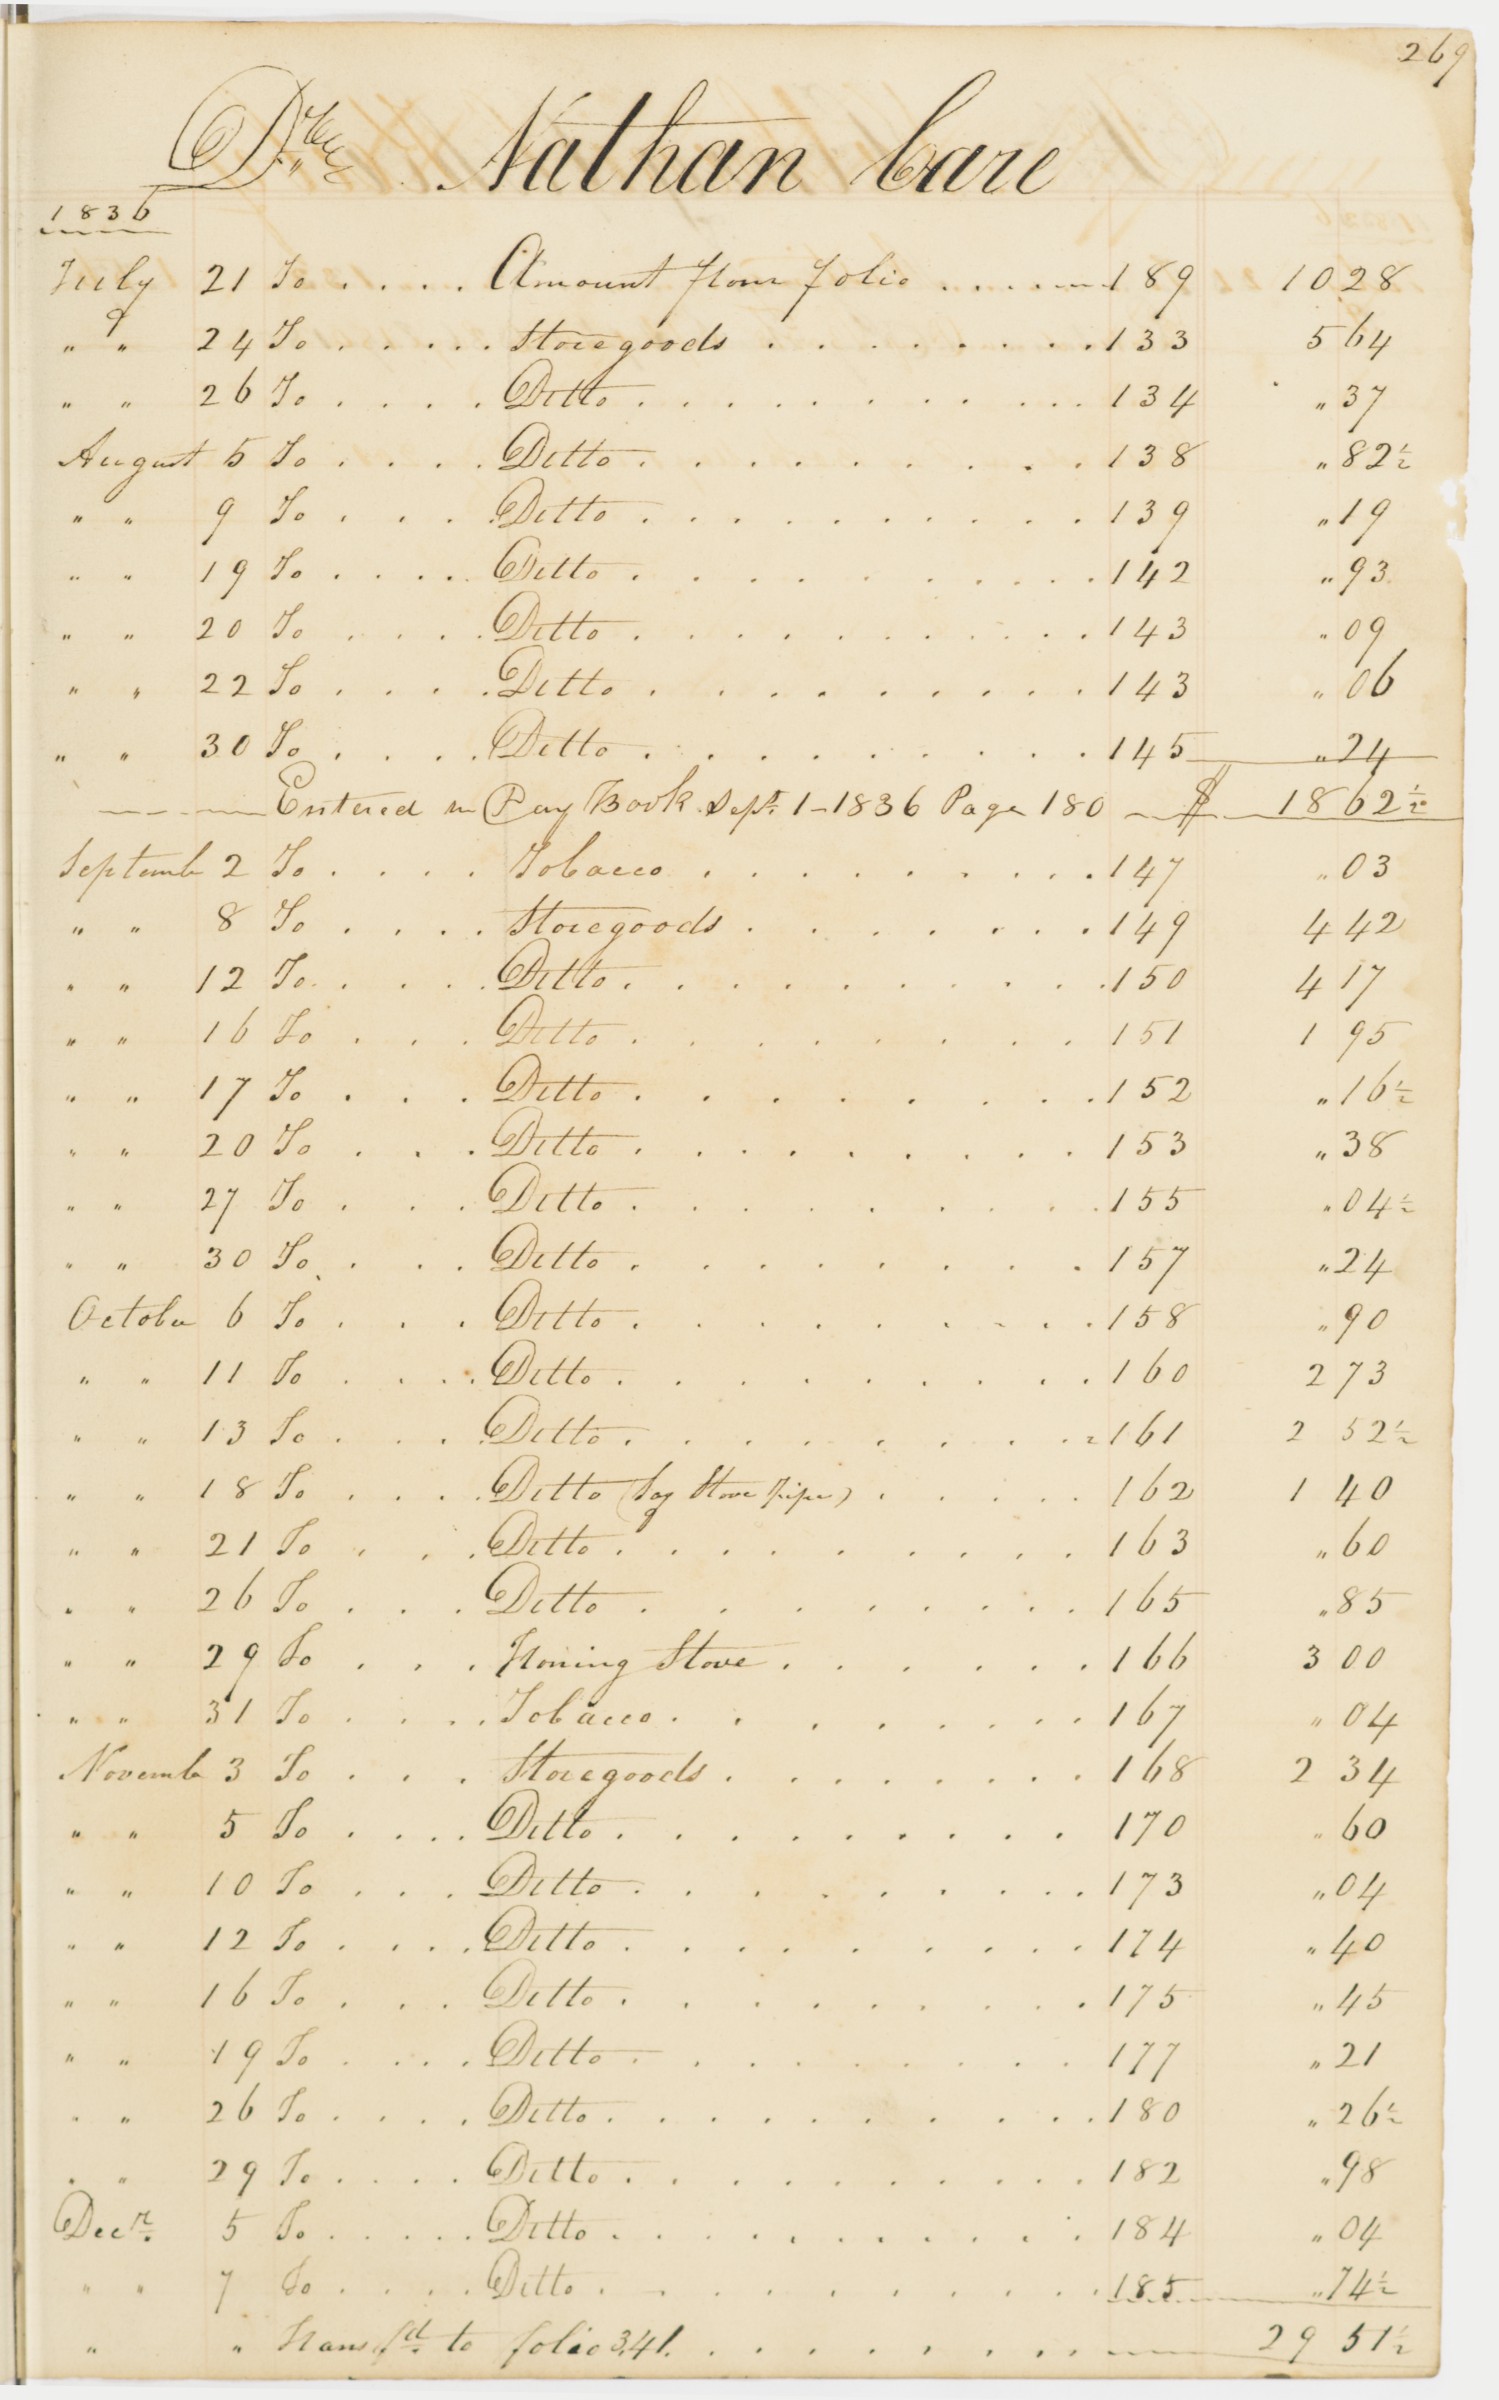 269
Dr. Nathan Care
1836
July 21 To . . . . Amount from folio . . . . 189 10 28
" " 24 To . . . . . Storegoods . . . . . . . . 133 5 64
" " 26 To . . . . Ditto . . . . . . . . . . . 134 " 37
August 5 To . . . . Ditto . . . . . . . . . 138 " 82½
" " 9 To . . . . Ditto . . . . . . . . . . 139 " 19
" " 19 To . . . . Ditto . . . . . . . . . . 142 " 93
" " 20 To . . . . Ditto . . . . . . . . . . 143 " 09
" " 22 To . . . . Ditto . . . . . . . . . . 143 " 06
" " 30 To . . . . Ditto . . . . . . . . . . 145 " 24
Entered in Day Book Sept. 1 - 1836 Page 180 $ 18 62½
Septemb 2 To . . . . Tobacco . . . . . . . . . 147 " 03
" " 8 To . . . . Storegoods . . . . . . . 149 4 42
" " 12 To . . . . Ditto . . . . . . . . . . 150 4 17
" " 16 To . . . Ditto . . . . . . . . . 151 1 95
" " 17 To . . . Ditto . . . . . . . . . 152 " 16½
" " 20 To . . . Ditto . . . . . . . . . 153 " 38
" " 27 To . . . Ditto . . . . . . . . . 155 " 04½
" " 30 To . . . Ditto . . . . . . . . . 157 " 24
October 6 To . . . Ditto . . . . . . . . . 158 " 90
" " 11 To . . . . Ditto . . . . . . . . . 160 2 73
" " 13 To . . . . Ditto . . . . . . . . . 161 2 52½
" " 18 To . . . . Ditto (Say Stove Pipe) . . . . . 162 1 40
" " 21 To . . . Ditto . . . . . . . . . 163 " 60
" " 26 To . . . Ditto . . . . . . . . . 165 " 85
" " 29 To . . . Stove . . . . . . 166 3 00
" " 31 To . . . . Tobacco . . . . . . . . . 167 " 04
Novemb 3 To . . . Storegoods . . . . . . . . 168 2 34
" " 5 To . . . . Ditto . . . . . . . . . 170 " 60
" " 10 To . . . Ditto . . . . . . . . . . 173 " 04
" " 12 To . . . . Ditto . . . . . . . . . 174 " 40
" " 16 To . . . Ditto . . . . . . . . . 175 " 45
" " 19 To . . . . Ditto . . . . . . . . . 177 " 21
" " 26 To . . . . Ditto . . . . . . . . . . 180 " 26½
" " 29 To . . . . Ditto . . . . . . . . . . 182 " 98
Decr. 5 To . . . . . Ditto . . . . . . . . . . 184 " 04
" " 7 To . . . . Ditto . . . . . . . . . . 185 " 74½
" " Transfd. to folio 341. . . . . . . . . . 29 51½